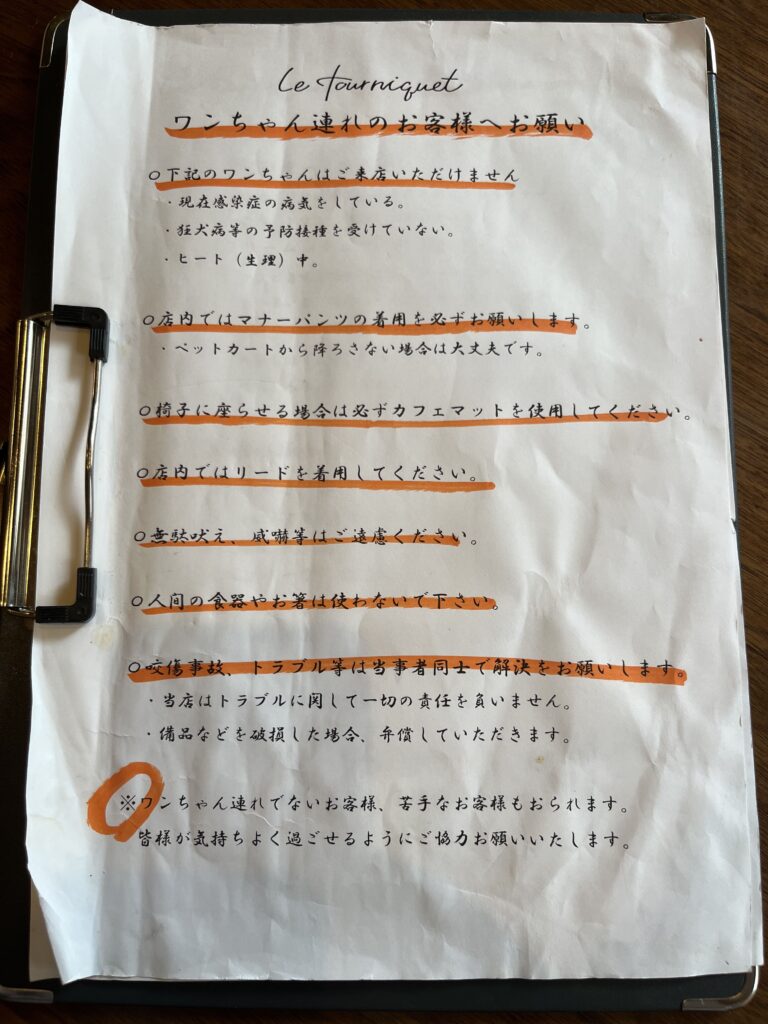 Le tourniquet
ワンちゃん連れのお客様へお願い
○下記のワンちゃんはご来店いただけません
・現在感染症の病気をしている。
・狂犬病等の予防接種を受けていない。
・ヒート（生理）中。
○店内ではマナーパンツの着用を必ずお願いします。
・ペットカートから降ろさない場合は大丈夫です。
○椅子に座らせる場合は必ずカフェマットを使用してください。
○店内ではリードを着用してください。
○無駄吠え、威嚇等はご遠慮ください。
○人間の食器やお箸は使わないで下さい。
○咬傷事故、トラブル等は当事者同士で解決をお願いします。
・当店はトラブルに関して一切の責任を負いません。
・備品などを破損した場合、弁償していただきます。
※ワンちゃん連れでないお客様、苦手なお客様もおられます。
皆様が気持ちよく過ごせるようにご協力お願いいたします。